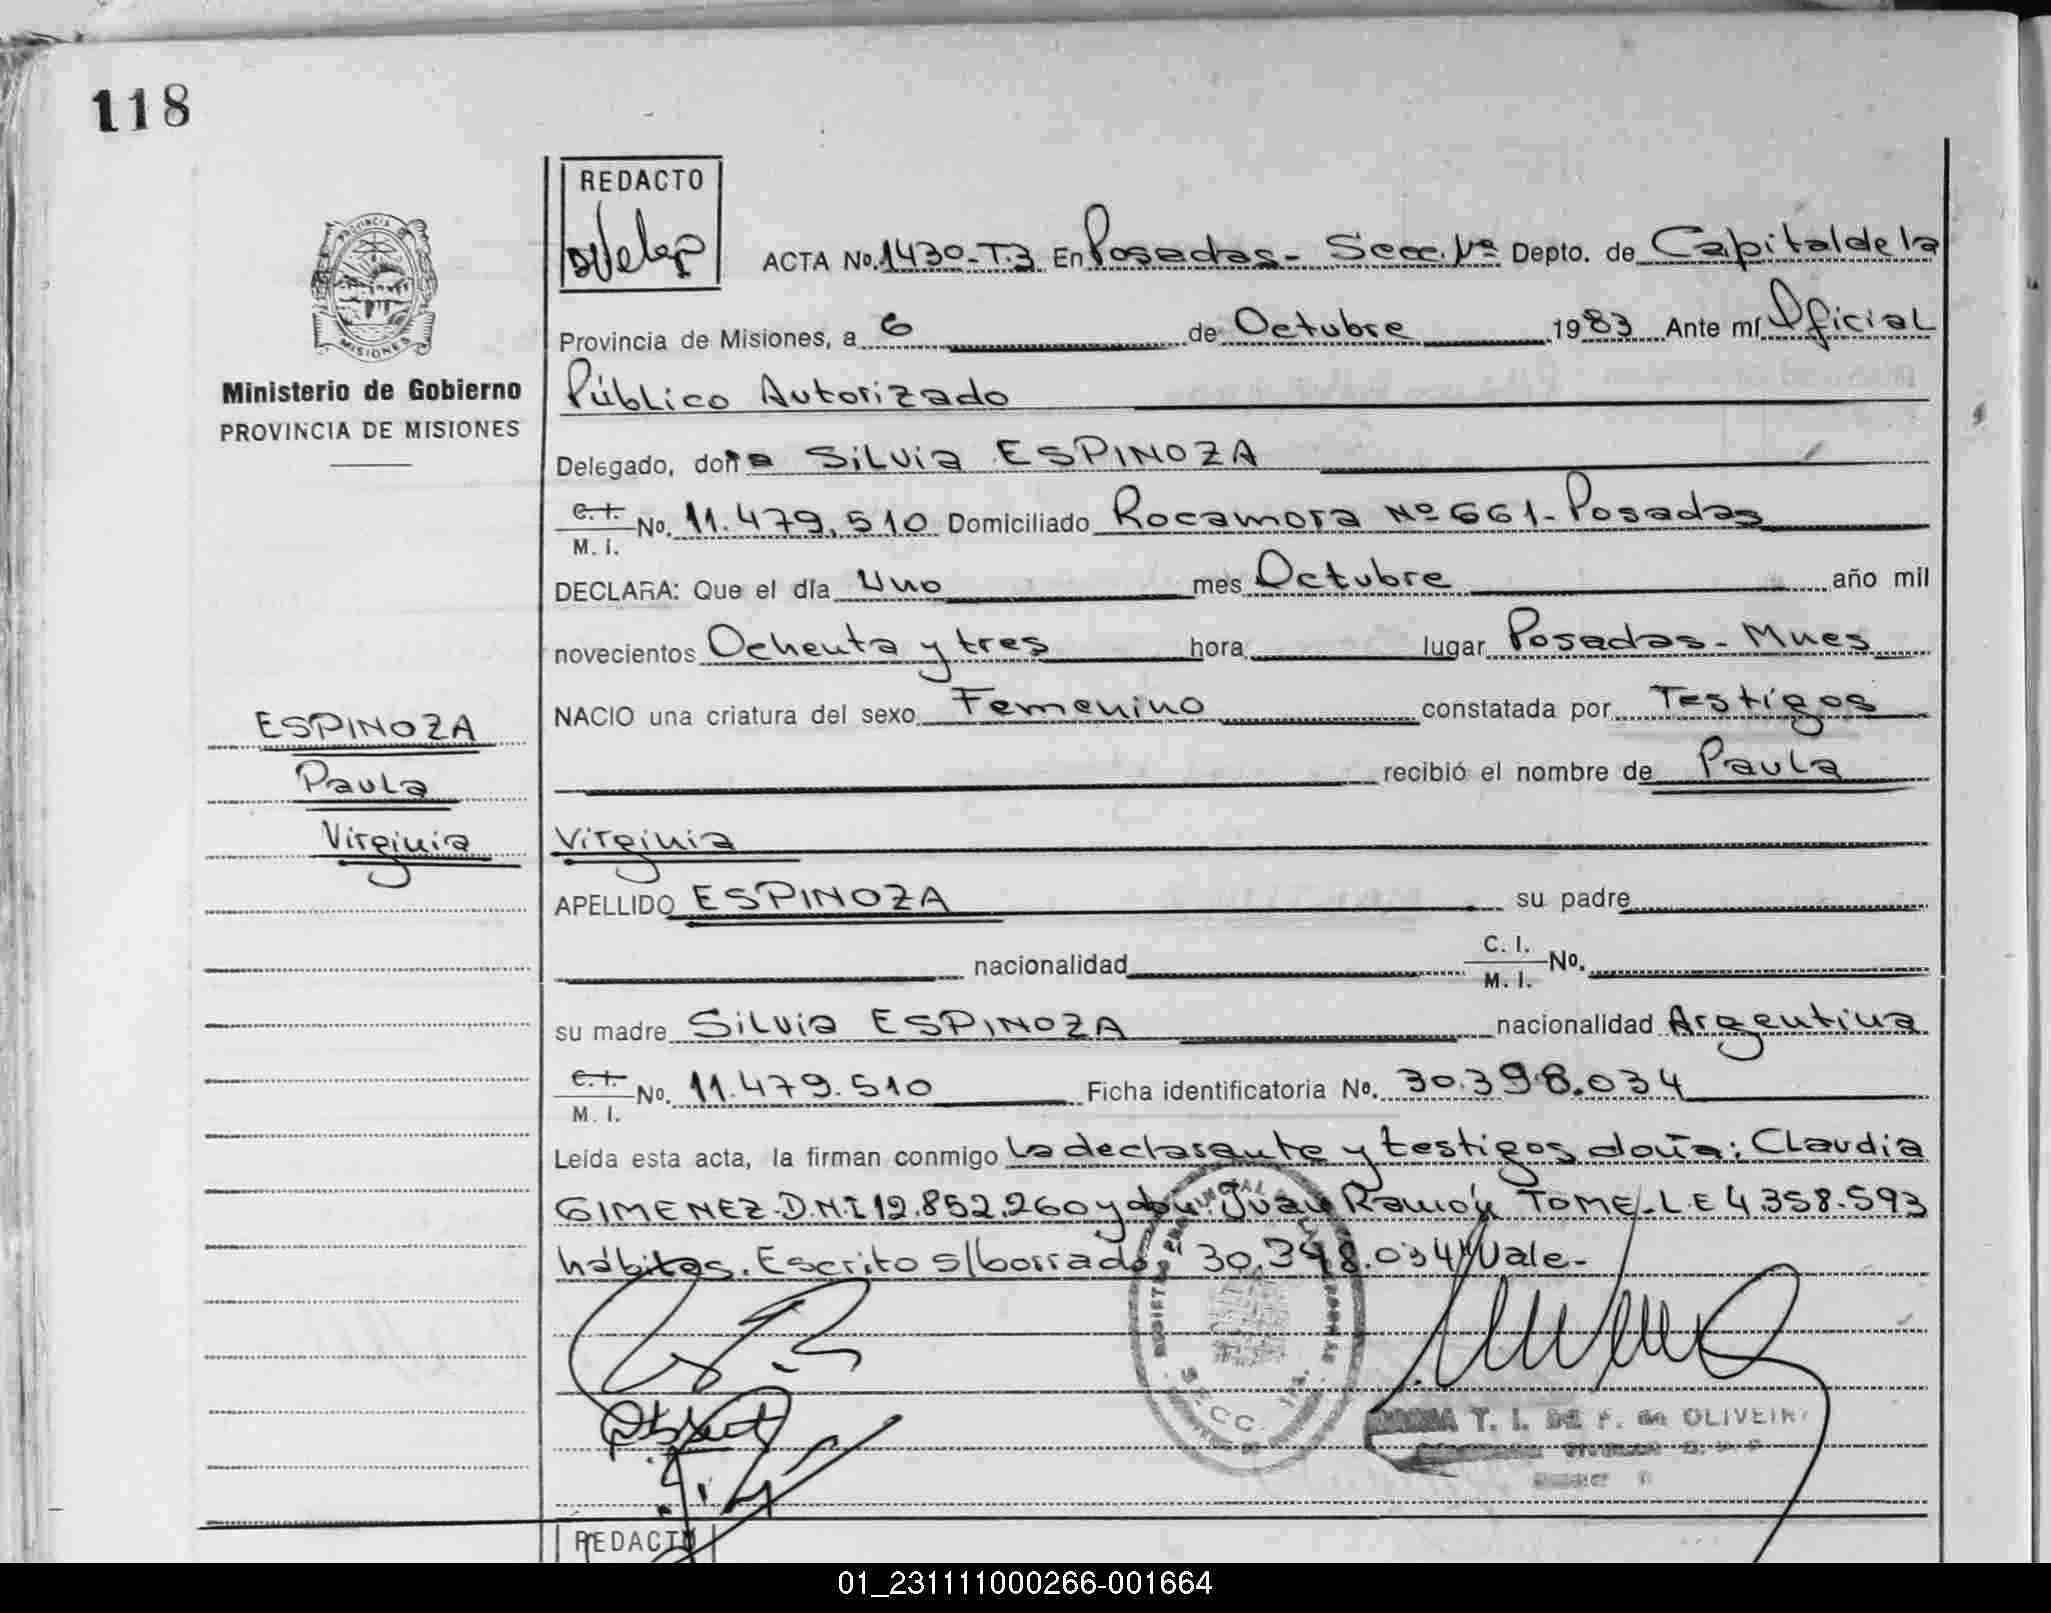 118
REDACTO
PROVINCIA DE
MISIONES
Ministerio de Gobierno
PROVINCIA DE MISIONES
ACTA No. 1430-T.3 En Posadas - Secc. 1ª Depto. de Capital de la
Provincia de Misiones, a 6 de Octubre 1983 Ante mí Oficial
Público Autorizado
Delegado, doña Silvia ESPINOZA
C. I. M. I. No. 11.479.510 Domiciliado Rocamora Nº 661 - Posadas
DECLARA: Que el día Uno mes Octubre año mil
novecientos Ochenta y tres hora lugar Posadas - Mnes
NACIO una criatura del sexo Femenino constatada por Testigos
recibió el nombre de Paula
Virginia
APELLIDO ESPINOZA su padre
nacionalidad C. I. M. I. No.
su madre Silvia ESPINOZA nacionalidad Argentina
C. I. M. I. No. 11.479.510 Ficha identificatoria No. 30.398.034
Leída esta acta, la firman conmigo la declarante y testigos doña: Claudia
GIMENEZ. D.N.I 12.852.260 y don: Juan Ramón TOME - L.E 4.358.593
hábiles. Escrito s/borrado: 30.398.034" Vale.-
ESPINOZA
Paula
Virginia
SECC. 1ra.
T. I. DE F. de OLIVEIRA
REDACTO
01_231111000266-001664